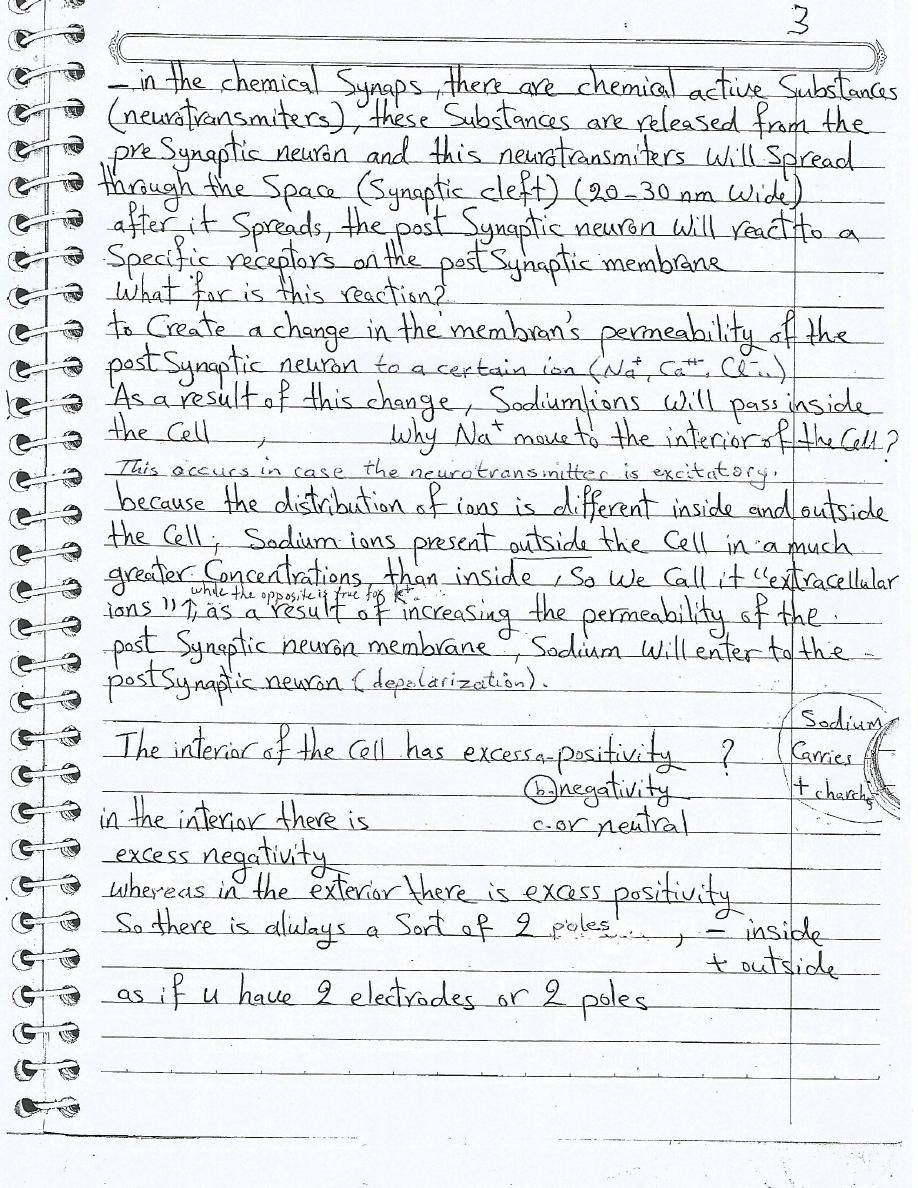 3
- in the chemical Synaps, there are chemical active Substances
(neurotransmiters), these Substances are released from the
pre Synaptic neuron and this neurotransmiters will Spread
through the Space (Synaptic cleft) (20-30 nm wide)
after it Spreads, the post Synaptic neuron will react to a
Specific receptors on the post Synaptic membrane
What for is this reaction?
to Create a change in the membran's permeability of the
post Synaptic neuron to a certain ion (Na+, Ca++, Cl-..)
As a result of this change, Sodium ions will pass inside
the Cell , Why Na+ move to the interior of the Cell?
This occurs in case the neurotransmitter is excitatory.
because the distribution of ions is different inside and outside
the Cell, Sodium ions present outside the Cell in a much
greater Concentrations, than inside, So We Call it "extracellular
while the opposite is true for K+
ions" ↑, as a result of increasing the permeability of the
post Synaptic neuron membrane, Sodium will enter to the -
post Synaptic neuron (depolarization).
Sodium
Carries
+ charch
The interior of the Cell has excess a-positivity ?
b. negativity
in the interior there is c. or neutral
excess negativity
whereas in the exterior there is excess positivity
So there is always a Sort of 2 poles , - inside
+ outside
as if u have 2 electrodes or 2 poles